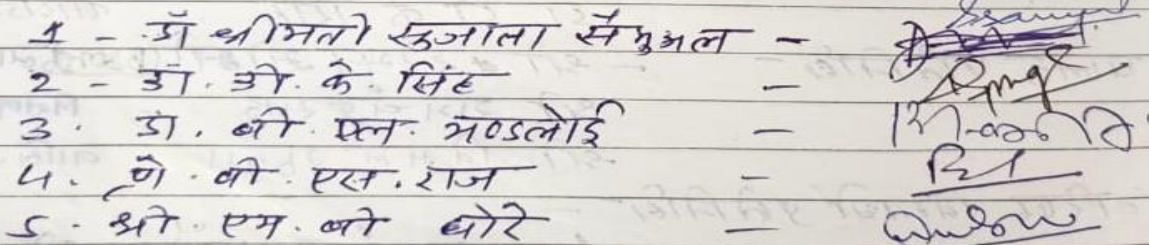 1 - डॉ श्रीमती सुजाता सैमुअल -
2 - डॉ. डी. के. सिंह -
3. डा. बी. एल. मण्डलोई -
4. प्रो. बी. एस. राज -
5. श्री. एम. बी धोरे -